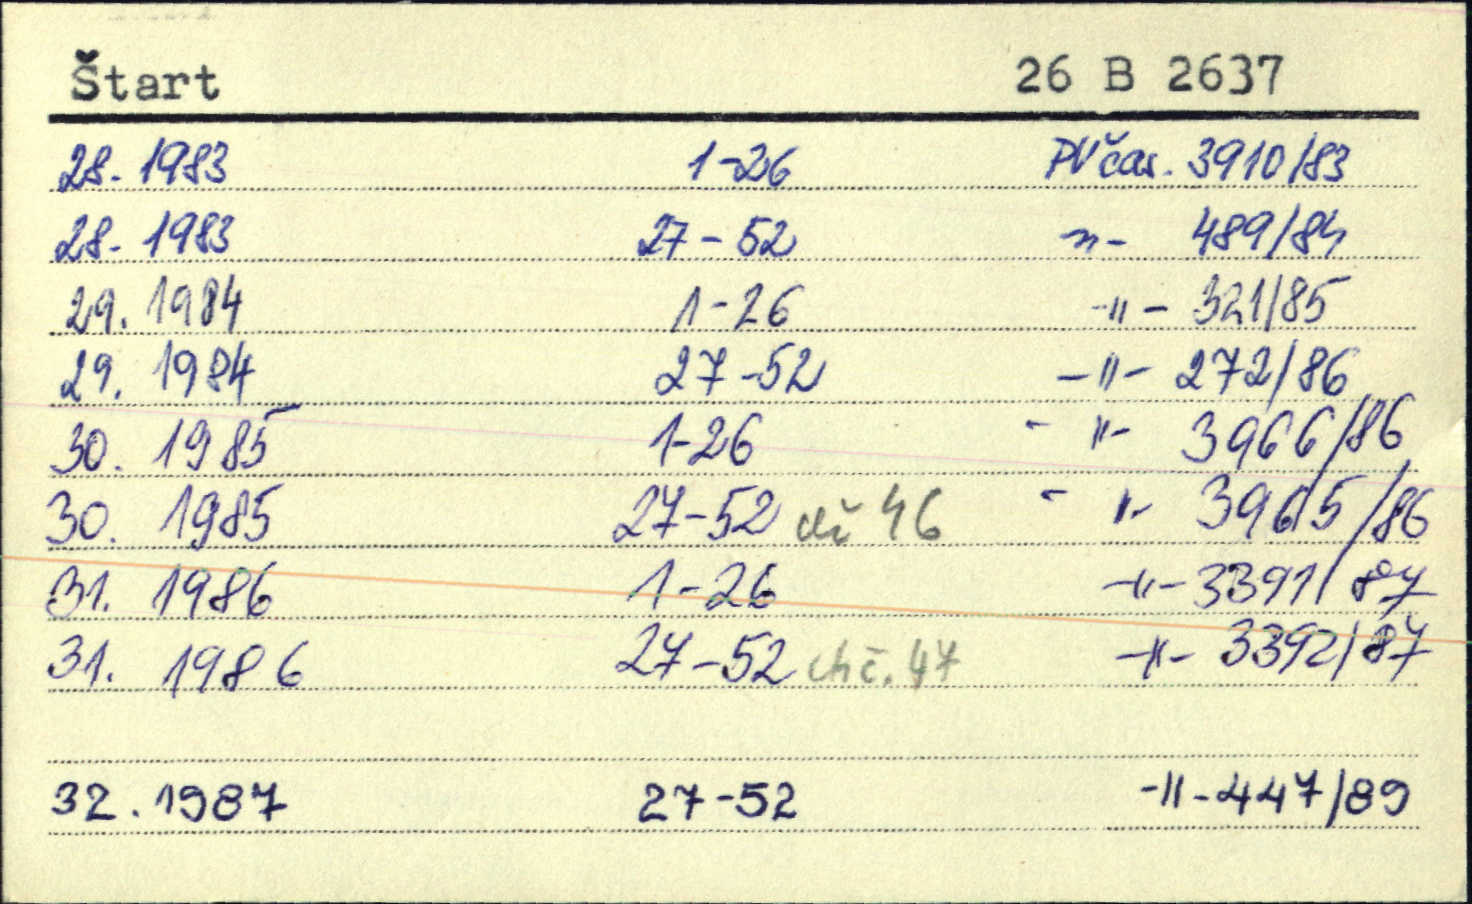 Štart 26 B 2637
28. 1983 1-26 PV čas. 3910/83
28. 1983 27-52 -"- 489/84
29. 1984 1-26 -"- 321/85
29. 1984 27-52 -"- 272/86
30. 1985 1-26 -"- 3966/86
30. 1985 27-52 č 46 -"- 3965/86
31. 1986 1-26 -"- 3391/87
31. 1986 27-52 ch č. 47 -"- 3392/87
32. 1987 27-52 -"- 447/89